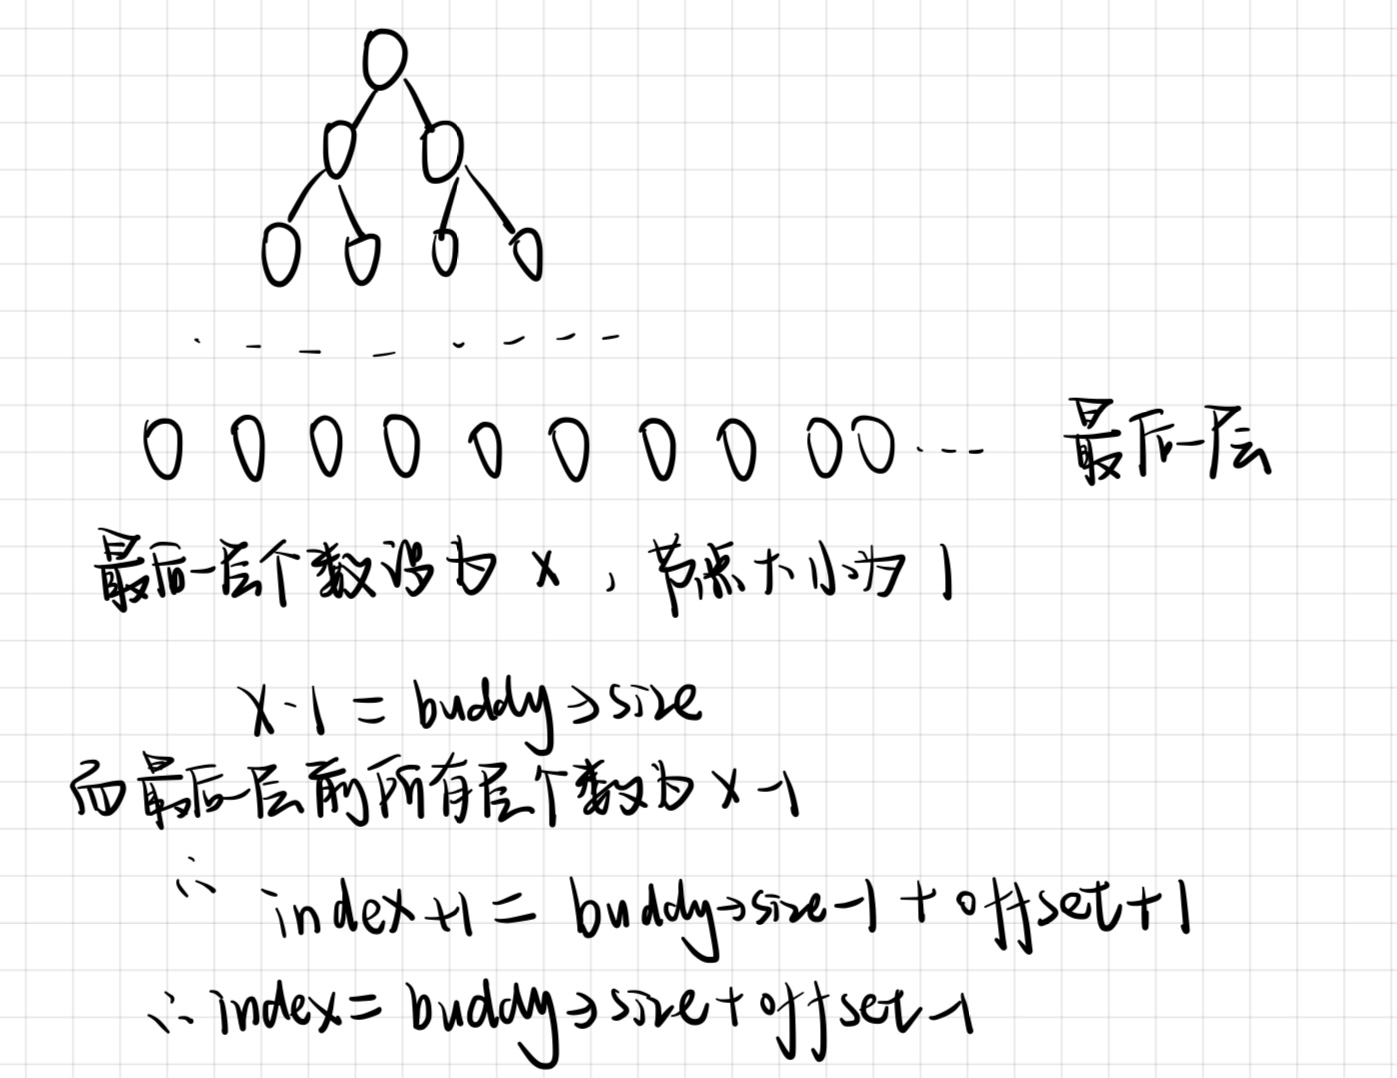 最后一层
最后一层个数设为 x , 节点大小为 1
x·1 = buddy→size
而最后一层前所有层个数为 x-1
∴ index+1 = buddy→size-1 + offset+1
∴ index = buddy→size + offset-1